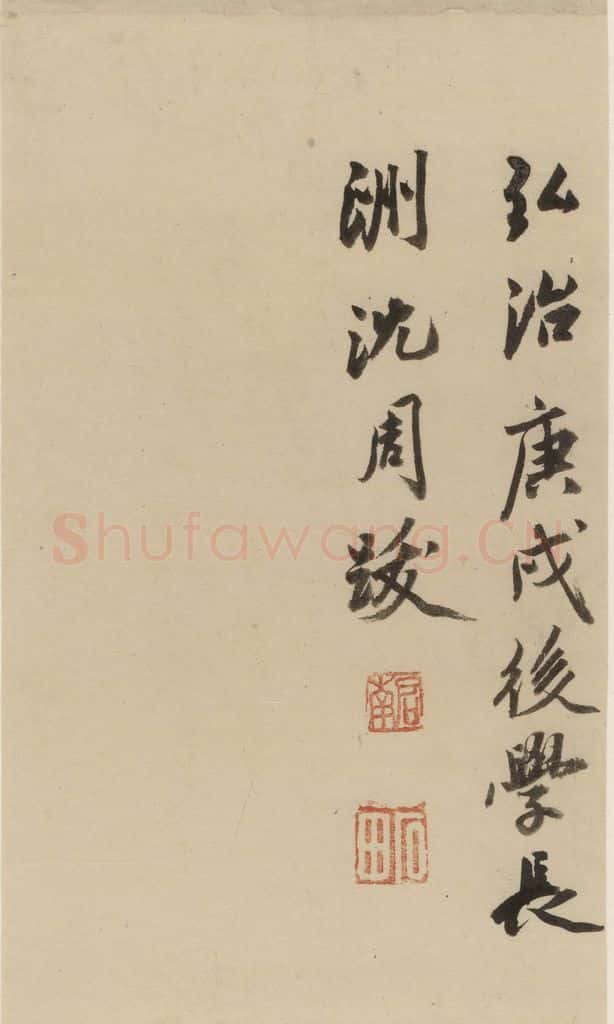 弘治庚戌後學長
洲沈周跋
啟南
石田
Shufawang.CN